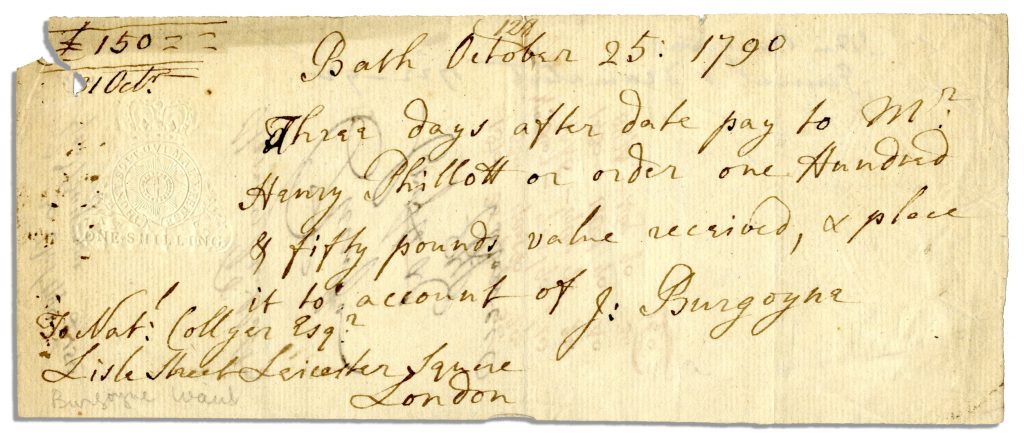 £ 150 = =
31 Octr.
128
Bath October 25: 1790
Three days after date pay to Mr.
Henry Phillott or order one Hundred
& fifty pounds value received, & place
it to account of J: Burgoyne
ONE·SHILLING
To Nat: Collyer Esqr.
Lisle Street Leicester Square
London
Burgoyne